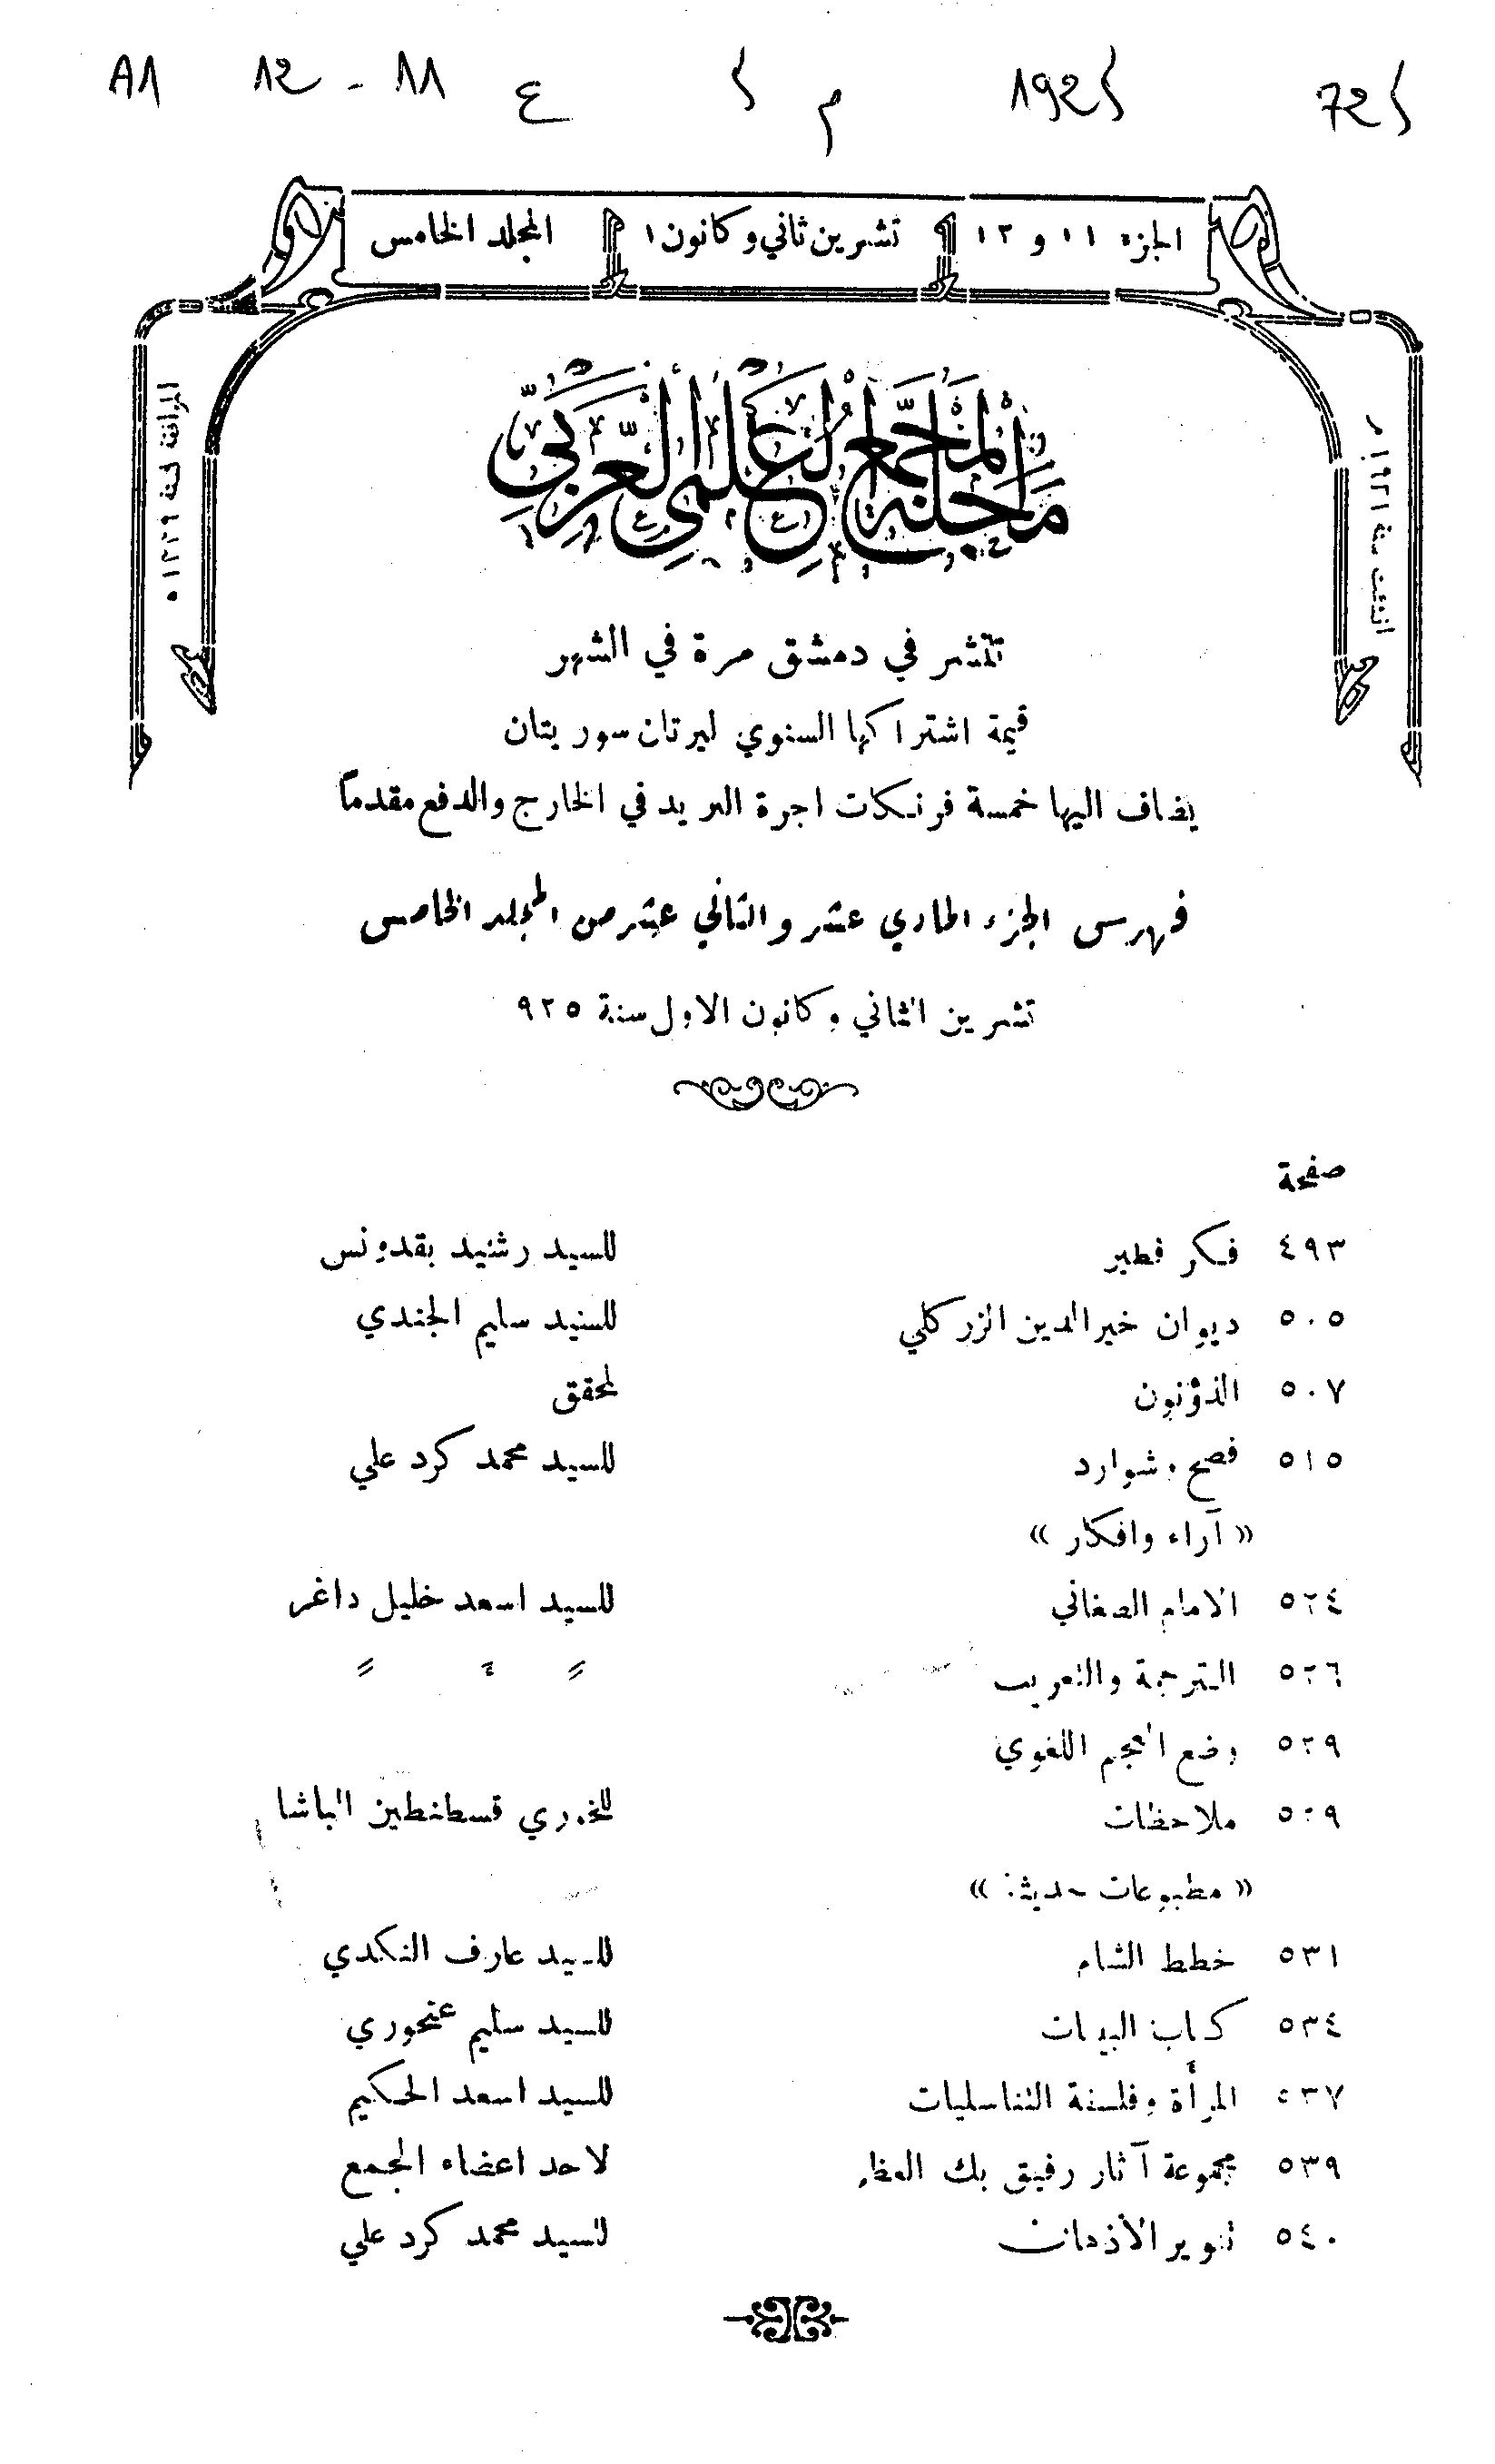 A1 12 - 11 ع م 192
الجزء ١١ و ١٢ تشرين ثاني وكانون ١ المجلد الخامس
انشئت سنة ١٩٢١ م
الموافقة لسنة ١٣٣٩ ه
مجلة المجمع العلمي العربي
تنشر في دمشق مرة في الشهر
قيمة اشتراكها السنوي ليرتان سوريتان
يضاف اليها خمسة فرنكات اجرة البريد في الخارج والدفع مقدماً
فهرس الجزء الحادي عشر والثاني عشر من المجلد الخامس
تشرين الثاني وكانون الاول سنة ٩٢٥
صفحة
٤٩٣ فكر فطير للسيد رشيد بقدونس
٥٠٥ ديوان خير الدين الزركلي للسيد سليم الجندي
٥٠٧ الذؤنون لمحقق
٥١٥ فصح وشوارد للسيد محمد كرد علي
« آراء وافكار »
٥٢٤ الامام الصغاني للسيد اسعد خليل داغر
٥٢٦ الترجمة والتعريب » » »
٥٢٩ وضع المعجم اللغوي
٥٢٩ ملاحظات للخوري قسطنطين الباشا
« مطبوعات حديثة »
٥٣١ خطط الشام للسيد عارف النكدي
٥٣٤ كتاب البيات للسيد سليم عنحوري
٥٣٧ المرأة وفلسفة التناسليات للسيد اسعد الحكيم
٥٣٩ مجموعة آثار رفيق بك العظم لاحد اعضاء المجمع
٥٤٠ تنوير الأذهان للسيد محمد كرد علي